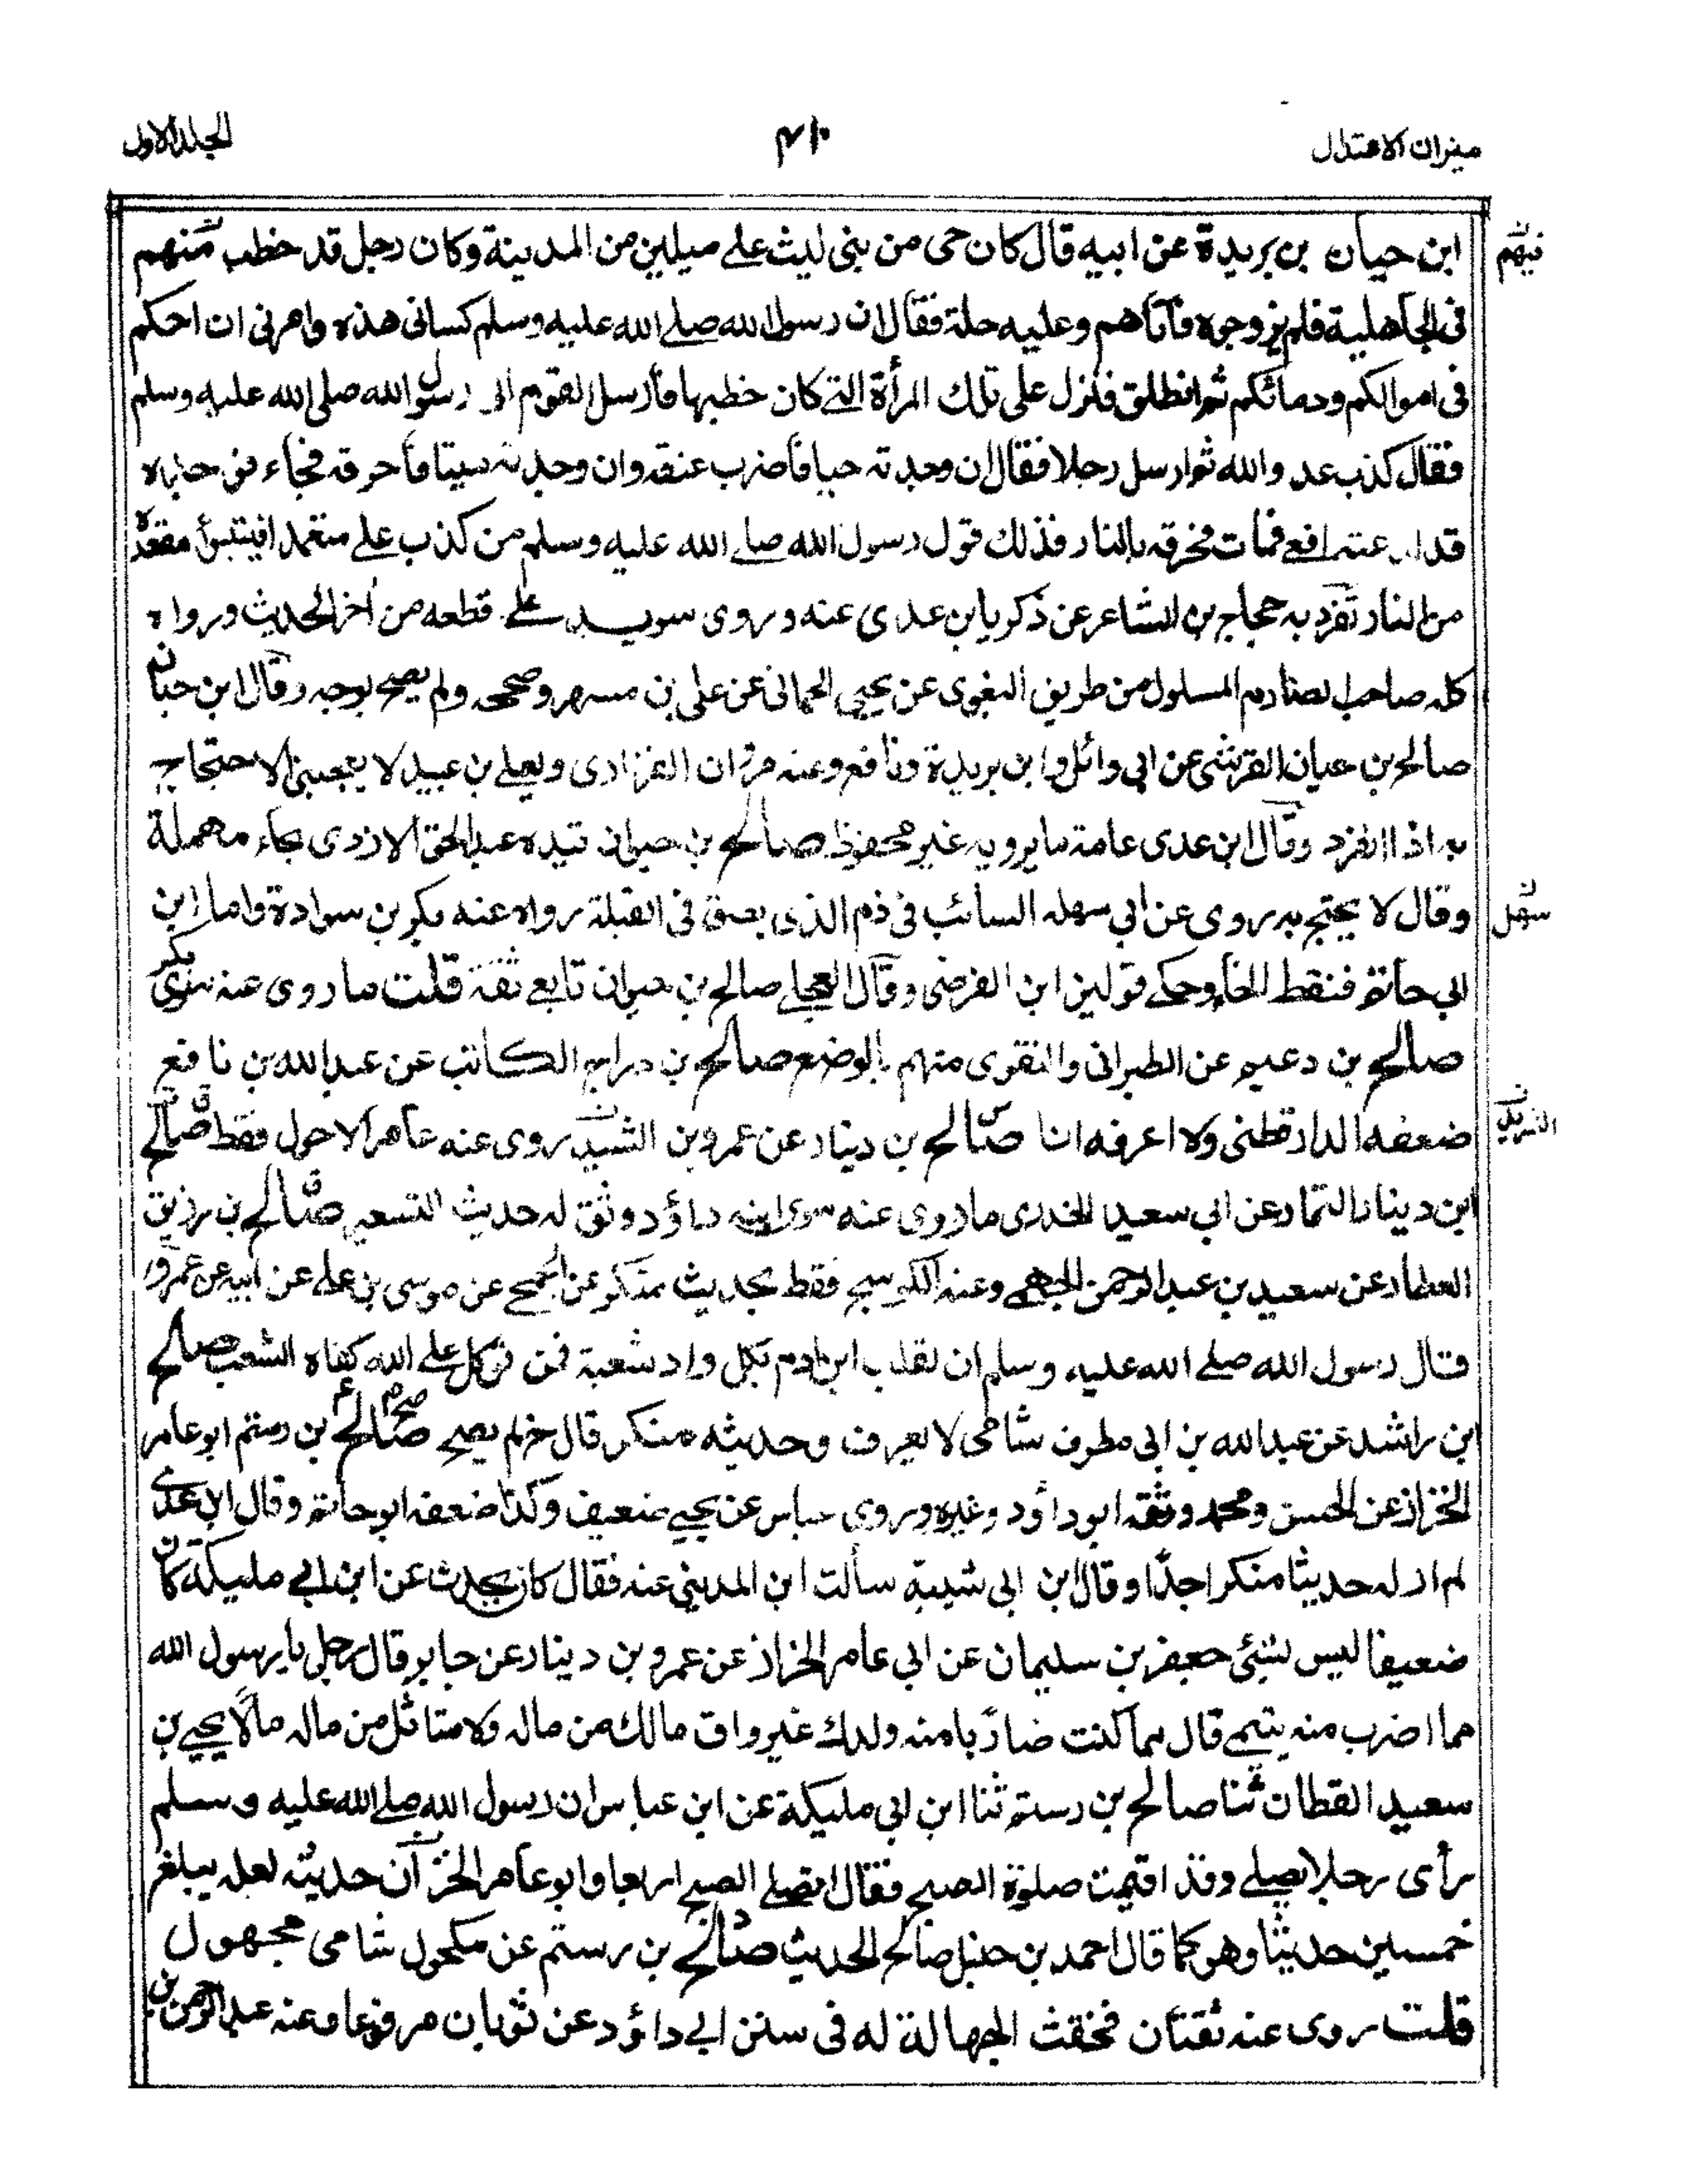 ميزان الاعتدال
٤١٠
الجلد الاول
ابن حيان بن بريدة عن ابيه قال كان حى من بنى ليث على ميلين من المدينة وكان رجل قد خطب منهم
فيهم
فى الجاهلية فلم يزوجوه فاتاهم وعليه حلة فقال ان رسول الله صلى الله عليه وسلم كسانى هذه وامرنى ان احكم
فى اموالكم ودمائكم ثم انطلق فنزل على تلك المرأة التى كان خطبها فارسل القوم الى رسول الله صلى الله عليه وسلم
فقال كذب عدو الله ثم ارسل رجلا فقال ان وجدته حيا فاضرب عنقه وان وجدته ميتا فاحرقه فجاء
قد افعى فمات فحرقه بالنار فذلك قول رسول الله صلى الله عليه وسلم من كذب على متعمدا فيتبوأ مقعده
من النار تفرد به حجاج بن الشاعر عن زكريا بن عدى عنه وروى سويد على قطعه من اخر الحديث ورواه
كله صاحب الصارم المسلول من طريق البغوى عن يحيى الحمانى عن على بن مسهر وصححه ولم يصح بوجه وقال ابن حبان
صالح بن حيان القرشى عن ابى وائل وابن بريدة ونافع وعنه مروان الفزارى ويعلى بن عبيد لا يعجبنى الاحتجاج
به اذا انفرد وقال ابن عدى عامة ما يرويه غير محفوظ صالح بن حيوان قيده عبد الحق الازدى بحاء مهملة
وقال لا يحتج به روى عن ابى سهله السائب فى ذم الذى بصق فى القبلة رواه عنه بكر بن سوادة واما ابن
سهل
ابى حاتم فنقط الخاء وحكى قولين ابن الفرضى وقال العجلى صالح بن حيوان تابعى ثقة قلت ما روى عنه سوى بكر
صالح بن دعيم عن الطبرانى والنقرى متهم بالوضع صالح بن الكاتب عن عبد الله بن نافع
ضعفه الدارقطنى ولا اعرفه انا صالح بن دينار عن عمرو بن الشريد روى عنه عامر الاحول فقط صالح
الشريد
ابن دينار التمار عن ابى سعيد الخدرى ما روى عنه سوى ابنه داؤد وثق له حديث التسعير صالح بن رزيق
العطار عن سعيد بن عبد الرحمن الجمحى وعنه الكوسج فقط بحديث منكر عن الجمحى عن موسى بن على عن ابيه عن عمرو
قال رسول الله صلى الله عليه وسلم ان لقلب ابن ادم بكل واد شعبة فمن توكل على الله كفاه الشعب صالح
بن راشد عن عبد الله بن ابى مطرف شامى لا يعرف وحديثه منكر قال خ لم يصح صالح بن رستم ابو عامر
الخزاز عن الحسن ومحمد وثقه ابو داؤد وغيره وروى عباس عن يحيى ضعيف وكذا ضعفه ابو حاتم وقال ابن عدى
لم ار له حديثا منكرا جدّا وقال ابن ابى شيبة سألت ابن المدينى عنه فقال كان يحدث عن ابن ابى مليكة كان
ضعيفا ليس بشئ جعفر بن سليمان عن ابى عامر الخزاز عن عمرو بن دينار عن جابر قال رجل يا رسول الله
مما اضرب منه يتيمى قال مما كنت ضاربا منه ولدك غير واق مالك من ماله ولا متاثل من ماله مالا يحيى بن
سعيد القطان ثنا صالح بن رستم ثنا ابن ابى مليكة عن ابن عباس ان رسول الله صلى الله عليه وسلم
رأى رجلا يصلى وقد اقيمت صلوة الصبح فقال اتصلى الصبح اربعا وابو عامر الخزاز حديثه لعله يبلغ
خمسين حديثا وهو كما قال احمد بن حنبل صالح الحديث صالح بن رستم عن مكحول شامى مجهول
قلت روى عنه ثقتان فخفت الجهالة له فى سنن ابى داؤد عن ثوبان مرفوعا وعنه عبد الرحمن بن